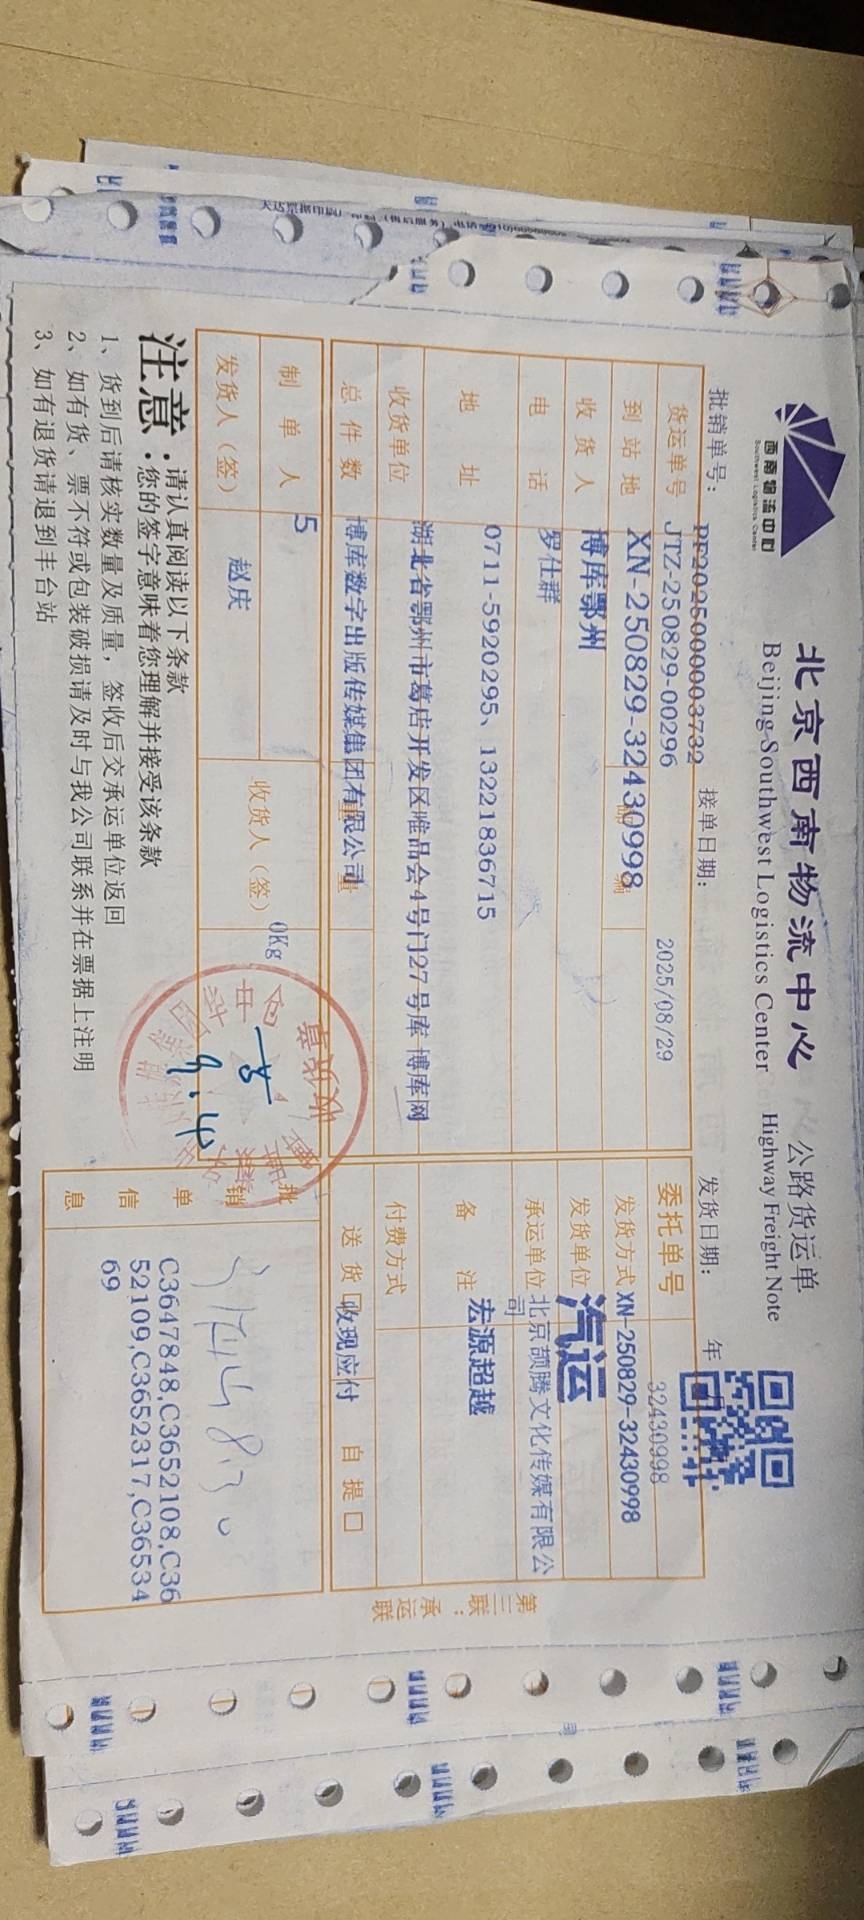 西南物流中心
Southwest Logistics Center
北京西南物流中心 公路货运单
Beijing Southwest Logistics Center Highway Freight Note
批销单号: PF2025000003732 接单日期: 2025/08/29 发货日期: 年
货运单号 JTZ-250829-00296
委托单号 32430998
到站地 XN-250829-32430998
发货方式 XN-250829-32430998
收货人 博库鄂州
发货单位 汽运
电话 罗仕群
承运单位 北京颉腾文化传媒有限公司
地址 0711-5920295、13221836715
备注 宏源超越
收货单位 湖北省鄂州市葛店开发区唯品会4号门27号库 博库网
付费方式
总件数 博库数字出版传媒集团有限公司
送货口 收现应付 自提口
制单人 5
0Kg
发货人(签) 赵庆 收货人(签)
收货章
9.4
批销单信息
8.30
C3647848,C3652108,C36
52109,C3652317,C36534
69
第三联:承运联
注意:
请认真阅读以下条款
您的签字意味着您理解并接受该条款
1、货到后请核实数量及质量,签收后交承运单位返回
2、如有货、票不符或包装破损请及时与我公司联系并在票据上注明
3、如有退货请退到丰台站